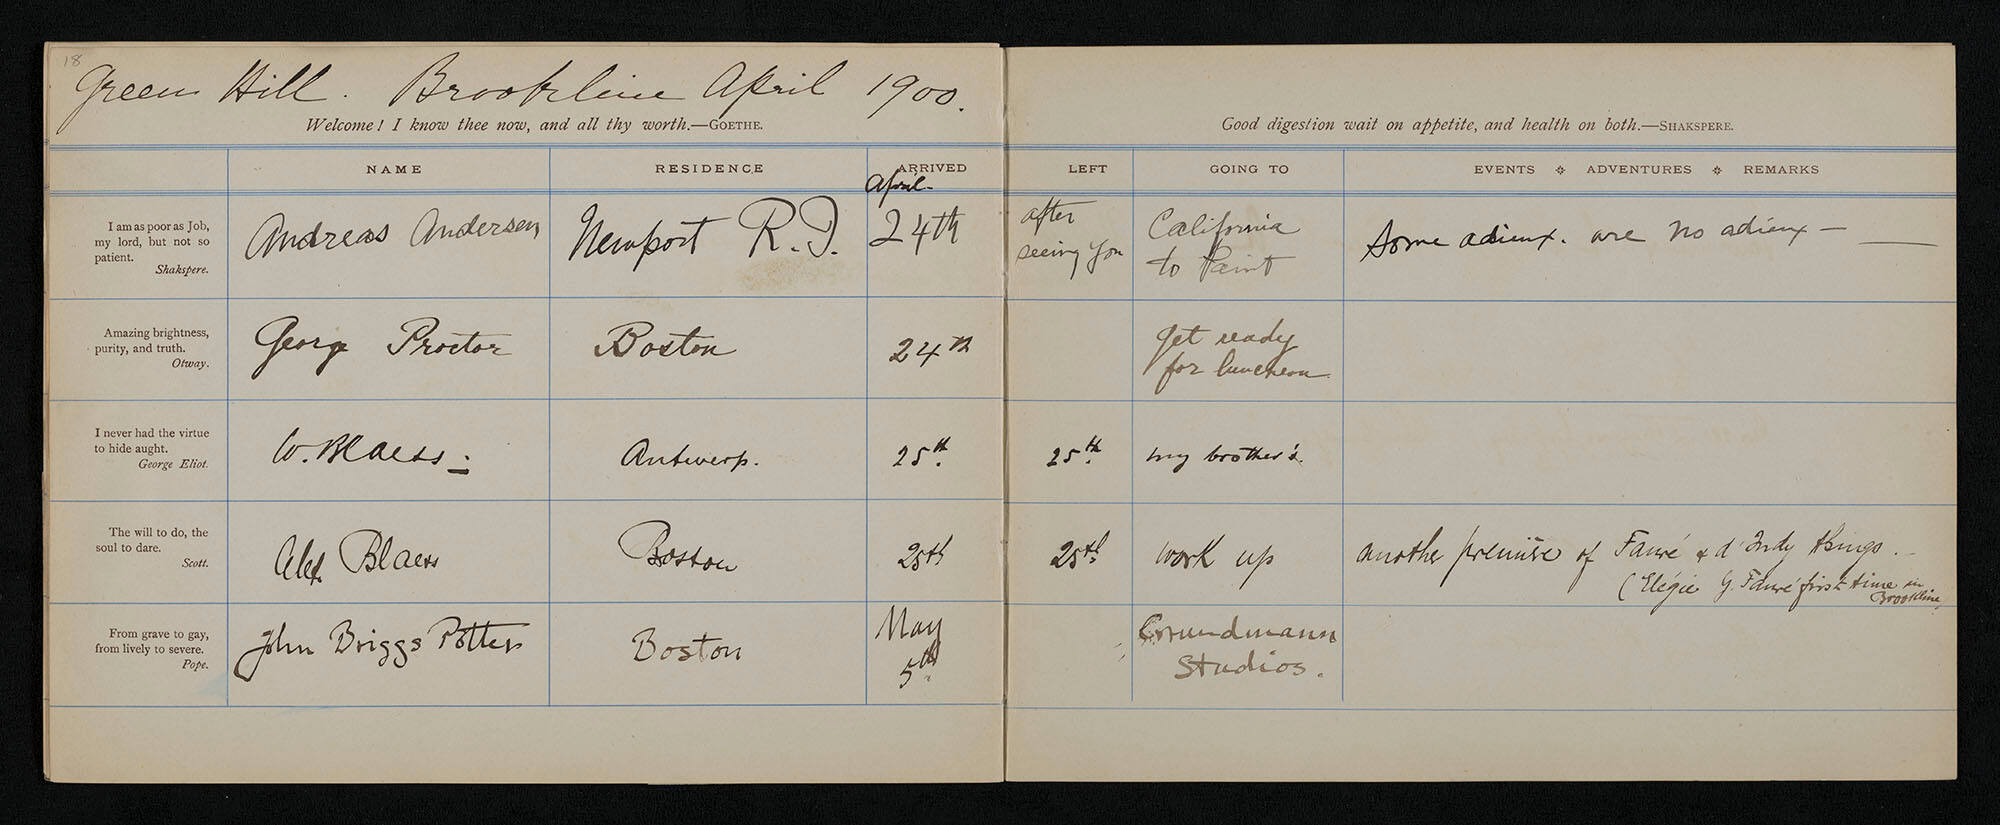 18
Green Hill. Brookline April 1900.
Welcome! I know thee now, and all thy worth.—GOETHE.
Good digestion wait on appetite, and health on both.—SHAKSPERE.
NAME RESIDENCE ARRIVED LEFT GOING TO EVENTS ADVENTURES REMARKS
I am as poor as Job,
my lord, but not so
patient.
Shakspere.
Andreas Andersen
Newport R.I.
April
24th
after
seeing you
California
to Paint
Some adieux. are no adieux —
Amazing brightness,
purity, and truth.
Otway.
George Proctor
Boston
24th
get ready
for luncheon
I never had the virtue
to hide aught.
George Eliot.
W. Blaess.
Antwerp.
25th.
25th.
my brother's.
The will to do, the
soul to dare.
Scott.
Alex Blaess
Boston
25th
25th.
work up
another première of Fauré & d'Indy things.
(Elégie G. Fauré first time in
Brookline,
From grave to gay,
from lively to severe.
Pope.
John Briggs Potter
Boston
May
5th
Grundmann
Studios.